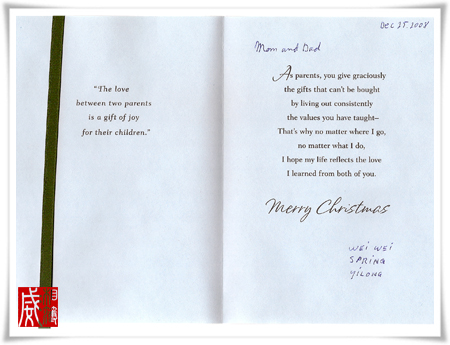 "The love
between two parents
is a gift of joy
for their children."
Dec 25 2008
Mom and Dad
As parents, you give graciously
the gifts that can't be bought
by living out consistently
the values you have taught–
That's why no matter where I go,
no matter what I do,
I hope my life reflects the love
I learned from both of you.
Merry Christmas
WEI WEI
SPRING
YILONG
威